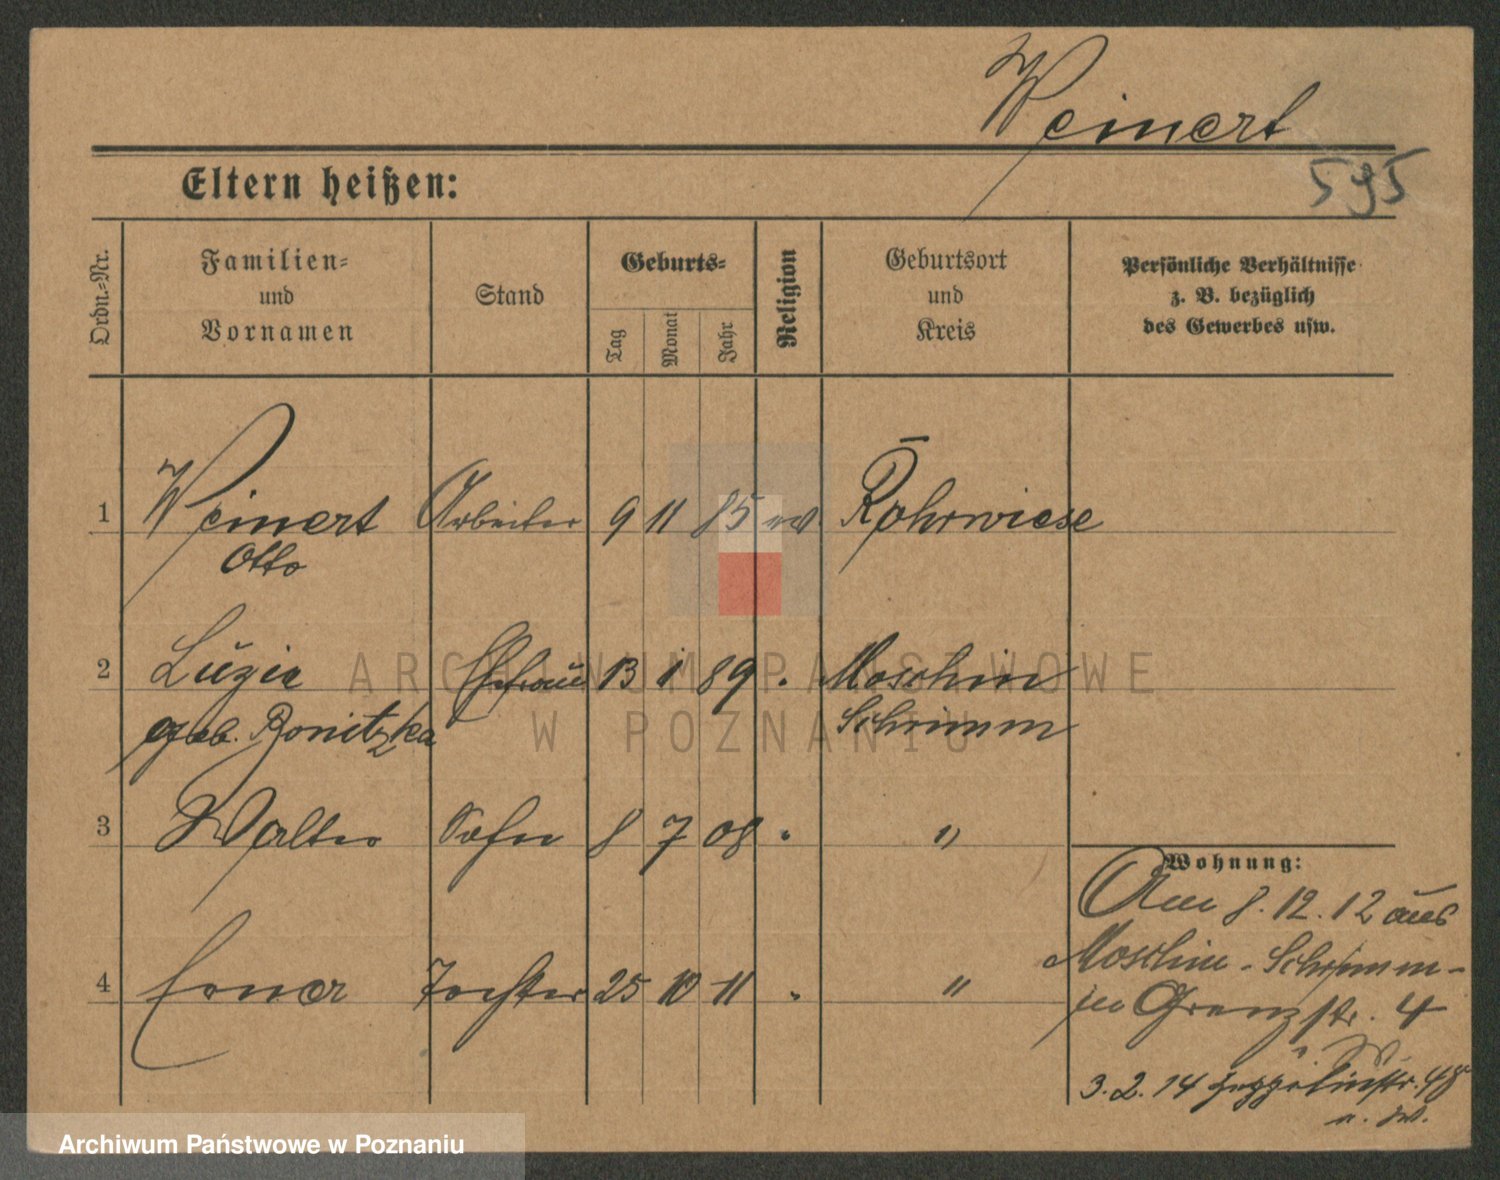 Weinert
595
Eltern heißen:
Ordn.=Nr.
Familien=
und
Vornamen
Stand
Geburts=
Tag
Monat
Jahr
Religion
Geburtsort
und
Kreis
Persönliche Verhältnisse
z. B. bezüglich
des Gewerbes usw.
1 Weinert Arbeiter 9 11 85 Röhrwiese
Otto
2 Luzie Ehefrau 13 1 89 Moschin
geb. Bonitzka Schrimm
3 Walter Sohn 8 7 08 "
4 Tochter 25 10 11 "
Wohnung:
Am 8.12.12 aus
Moschin - Schrimm -
in Grenzstr. 4
3.2.14 Zeppelinstr. 48
ARCHIWUM PAŃSTWOWE
W POZNANIU
Archiwum Państwowe w Poznaniu